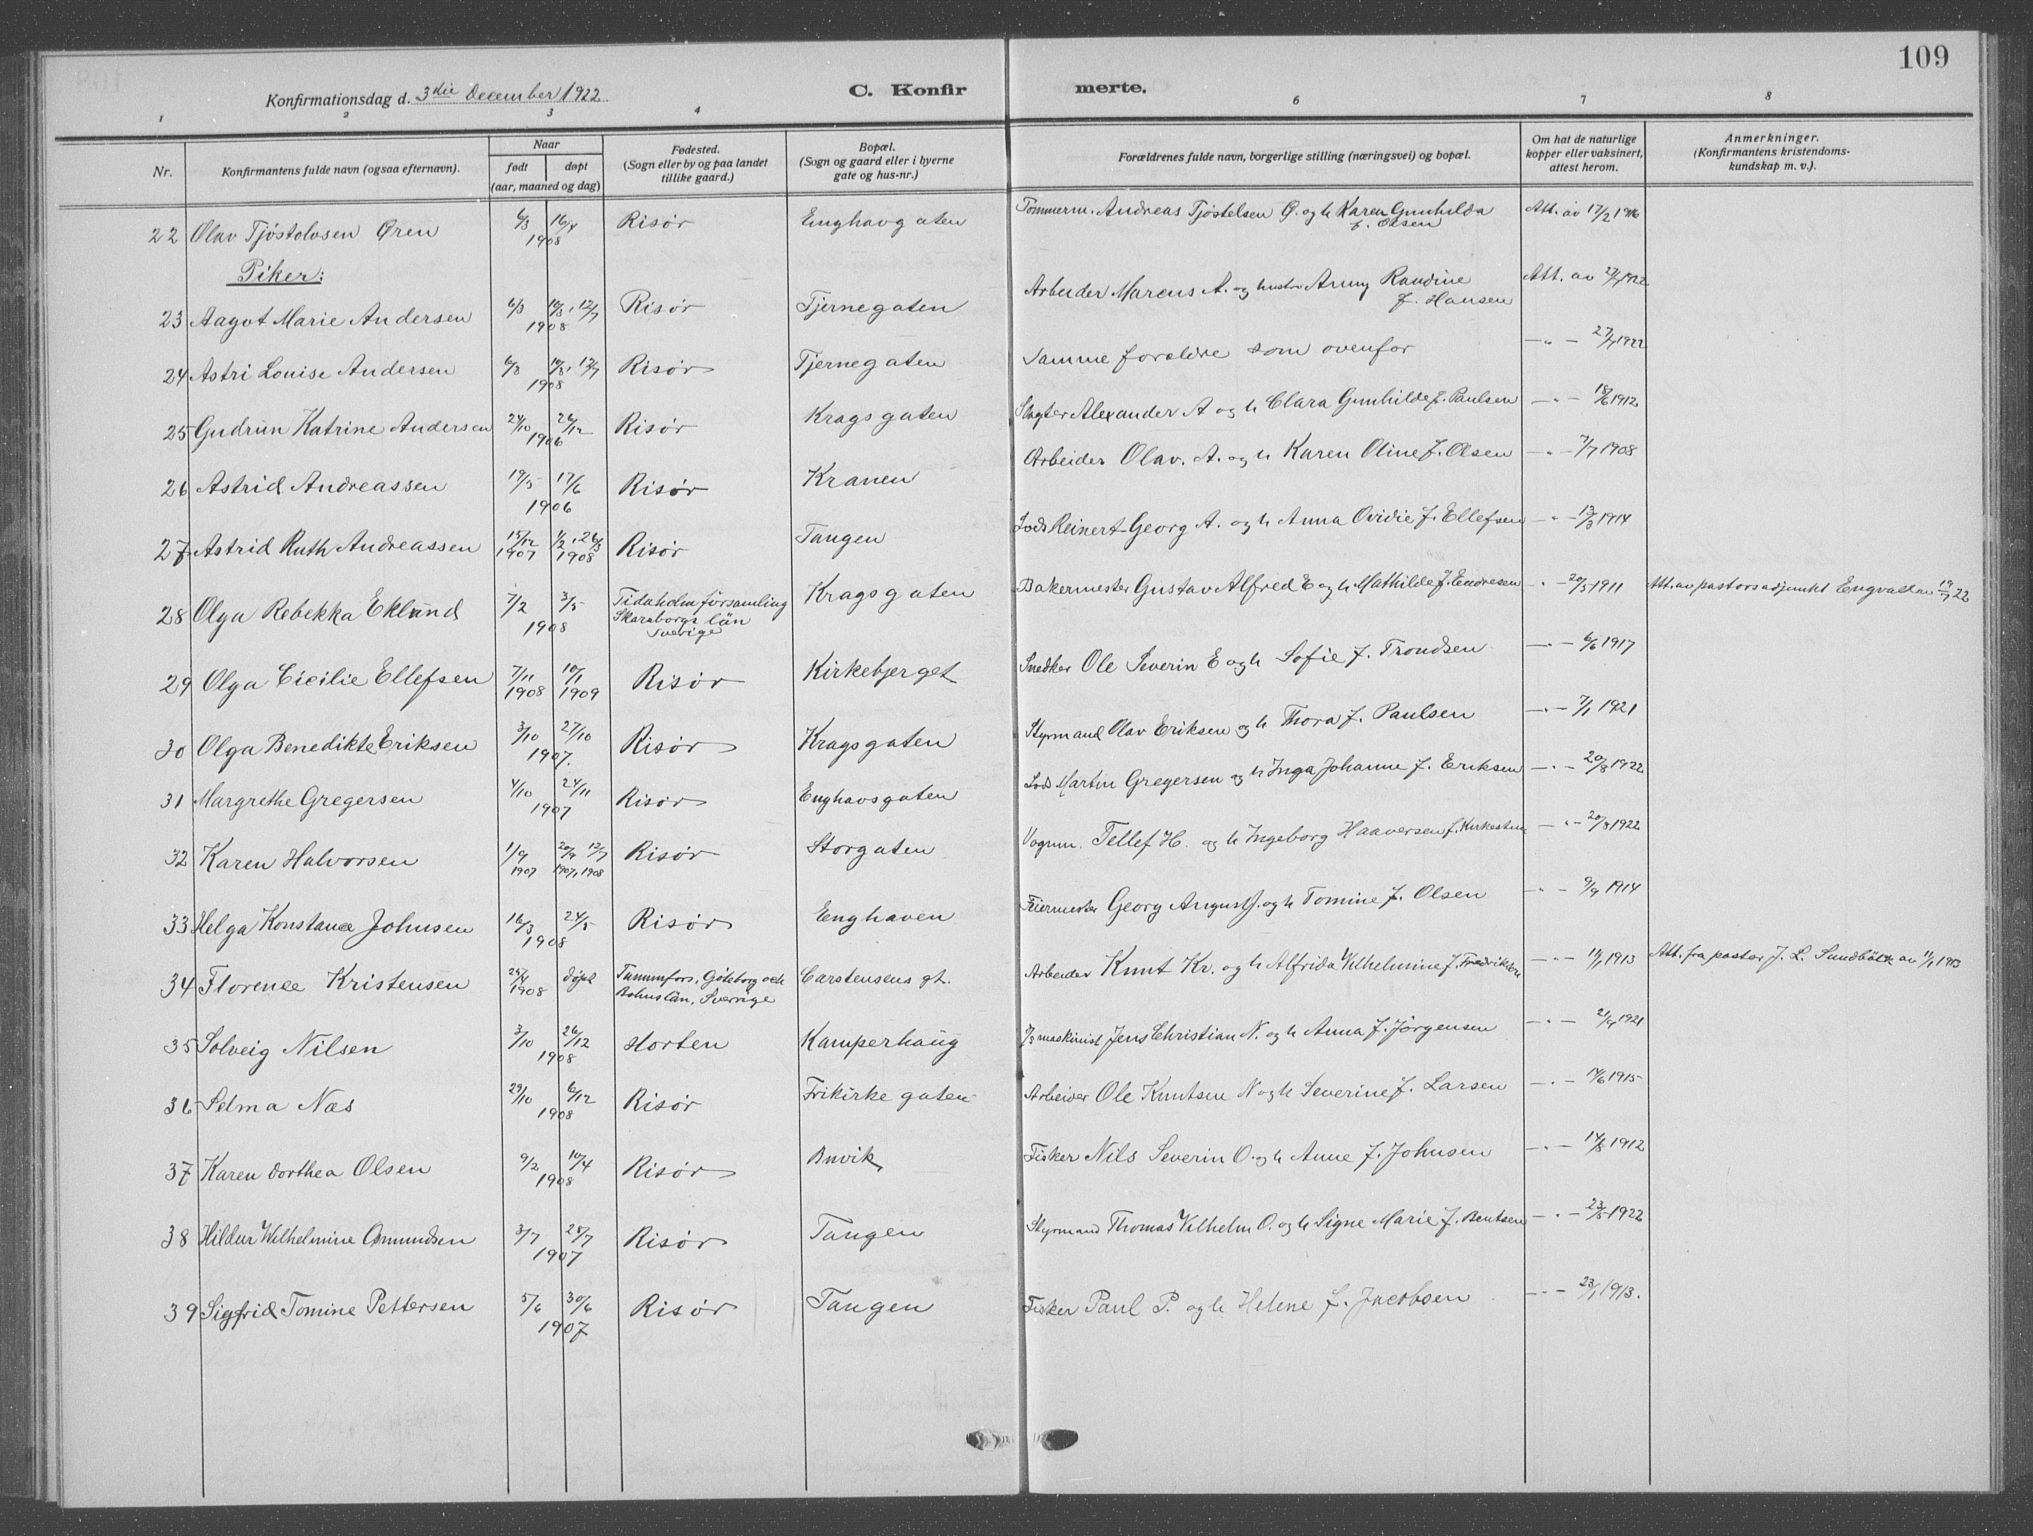 109
Konfirmationsdag d. 3die December 1922
C. Konfir merte.
1 2 3 4 6 7 8
Nr.
Konfirmantens fulde navn (ogsaa efternavn).
Naar
født døpt
(aar, maaned og dag)
Fødested.
(Sogn eller by og paa landet
tillike gaard.)
Bopæl.
(Sogn og gaard eller i byerne
gate og hus-nr.)
Forældrenes fulde navn, borgerlige stilling (næringsvei) og bopæl.
Om hat de naturlige
kopper eller vaksinert,
attest herom.
Anmerkninger.
(Konfirmantens kristendoms-
kundskap m. v.).
22 Olav Tjøstolvsen Øren 6/3 16/4 1908 Risør Enghavgaten Tømmerm. Andreas Tjøstelsen Ø. og h Karen Gunhilda f. Olsen Att. av 17/2 1916
Piker:
23 Aagot Marie Andersen 6/3 10/3, 12/7 1908 Risør Tjernegaten Arbeider Marcus A. og hustru Anny Randine f. Hansen Att. av 27/7 1922
24 Astri Louise Andersen 6/3 10/3, 12/7 1908 Risør Tjernegaten Samme forældre som ovenfor —"— 27/7 1922
25 Gudrun Katrine Andersen 24/10 26/12 1906 Risør Kragsgaten Slagter Alexander A og h Clara Gunhilde f. Paulsen —"— 18/6 1912
26 Astrid Andreassen 19/5 17/6 1906 Risør Kranen Arbeider Olav. A. og h Karen Oline f. Olsen —"— 7/7 1908
27 Astrid Ruth Andreassen 15/12 1907 1/2, 26/3 1908 Risør Tangen Lods Reinert Georg A. og h Anna Ovidie f. Ellefsen —"— 13/3 1914
28 Olga Rebekka Eklund 7/2 3/5 1908 Tidaholm församling Skaraborgs län Sverige Kragsgaten Bakermester Gustav Alfred E og h Mathilde f. Endresen —"— 20/5 1911 Att. av pastorsadjunkt Engvall av 19/7 22
29 Olga Cicilie Ellefsen 7/11 1908 10/1 1909 Risør Kirkebjerget Snedker Ole Severin E og h Sofie f. Trondsen —"— 6/6 1917
30 Olga Benedikte Eriksen 3/10 27/10 1907. Risør Kragsgaten Styrmand Olav Eriksen og h Thora f. Paulsen —"— 7/1 1921
31 Margrethe Gregersen 4/10 24/11 1907 Risør Enghavsgaten Lods Martin Gregersen og h Inga Johanne f. Eriksen —"— 20/8 1922
32 Karen Halvorsen 1/9 1907 20/9 1907, 12/7 1908 Risør Storgaten Vognm. Tellef H. og h Ingeborg Haaversen f. —"— 20/8 1922
33 Helga Konstance Johnsen 16/3 24/5 1908 Risør Enghaven Feiermester Georg August J. og h Tomine f. Olsen —"— 9/9 1914
34 Florence Kristensen 25/4 1908 døpt Tannmfors, Göteborg och Bohuslän, Sverige Carstensens gt. Arbeider Knut Kr. og h Alfrida Vilhelmine f. Fredriksen —"— 11/1 1913 Att. fra pastor J. L. Sundbäck av 11/1 1913
35 Solveig Nilsen 3/10 26/12 1908 Horten Kamperhaug maskinist Jens Christian N. og h Anna f. Jørgensen —"— 21/9 1921
36 Selma Næs 29/10 6/12 1908 Risør Frikirkegaten Arbeider Ole Knutsen N og h Severine f. Larsen —"— 14/6 1915
37 Karen Dorthea Olsen 9/2 10/4 1908 Risør Buvik Fisker Nils Severin O. og h Anne f. Johnsen —"— 14/8 1912
38 Hildur Wilhelmine Osmundsen 3/7 28/7 1907 Risør Tangen Styrmand Thomas Vilhelm O. og h Signe Marie f. Bentsen —"— 23/5 1922
39 Sigfrid Tomine Pettersen 5/6 30/6 1907 Risør Tangen Fisker Paul P. og h Helene f. Jacobsen —"— 23/1 1913.